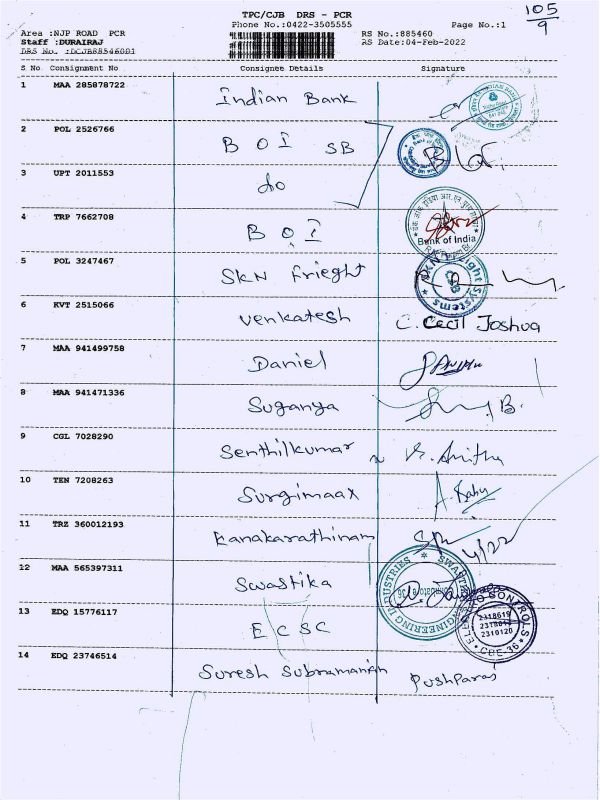 105
9
TPC/CJB DRS - PCR
Phone No.:0422-3505555
Page No.:1
Area :NJP ROAD PCR
RS No.:885460
Staff :DURAIRAJ
RS Date:04-Feb-2022
DRS No. :DCJB88546001
S No Consignment No Consignee Details Signature
1 MAA 285878722 Indian Bank
2 POL 2526766 B O I SB
3 UPT 2011553 do
4 TRP 7662708 B O I
Bank of India
5 POL 3247467 SKN Frieght
6 KVT 2515066 Venkatesh C. Cecil Joshua
7 MAA 941499758 Daniel
8 MAA 941471336 Suganya
9 CGL 7028290 Senthilkumar
10 TEN 7208263 Surgimaax
11 TRZ 360012193 Kanakarathinam
4/22
12 MAA 565397311 Swastika
SWASTIKA ENGINEERING INDUSTRIES
13 EDQ 15776117 E C S C
2318619
2310120
CBE-36
14 EDQ 23746514 Suresh Subramanian Pushparaj